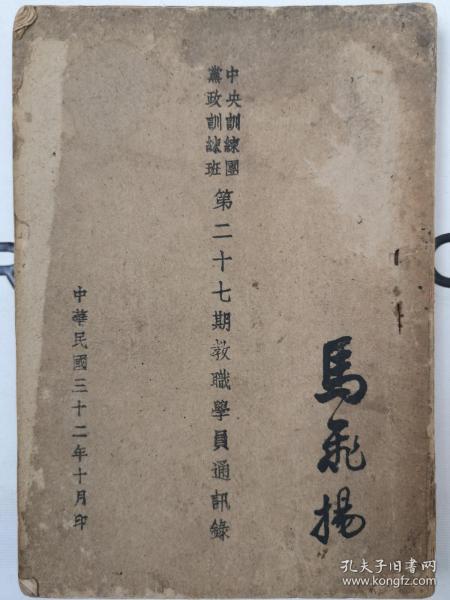 中央訓練團
黨政訓練班
第二十七期教職學員通訊錄
中華民國三十二年十月印
馬飛揚
孔夫子旧书网
www.kongfz.com